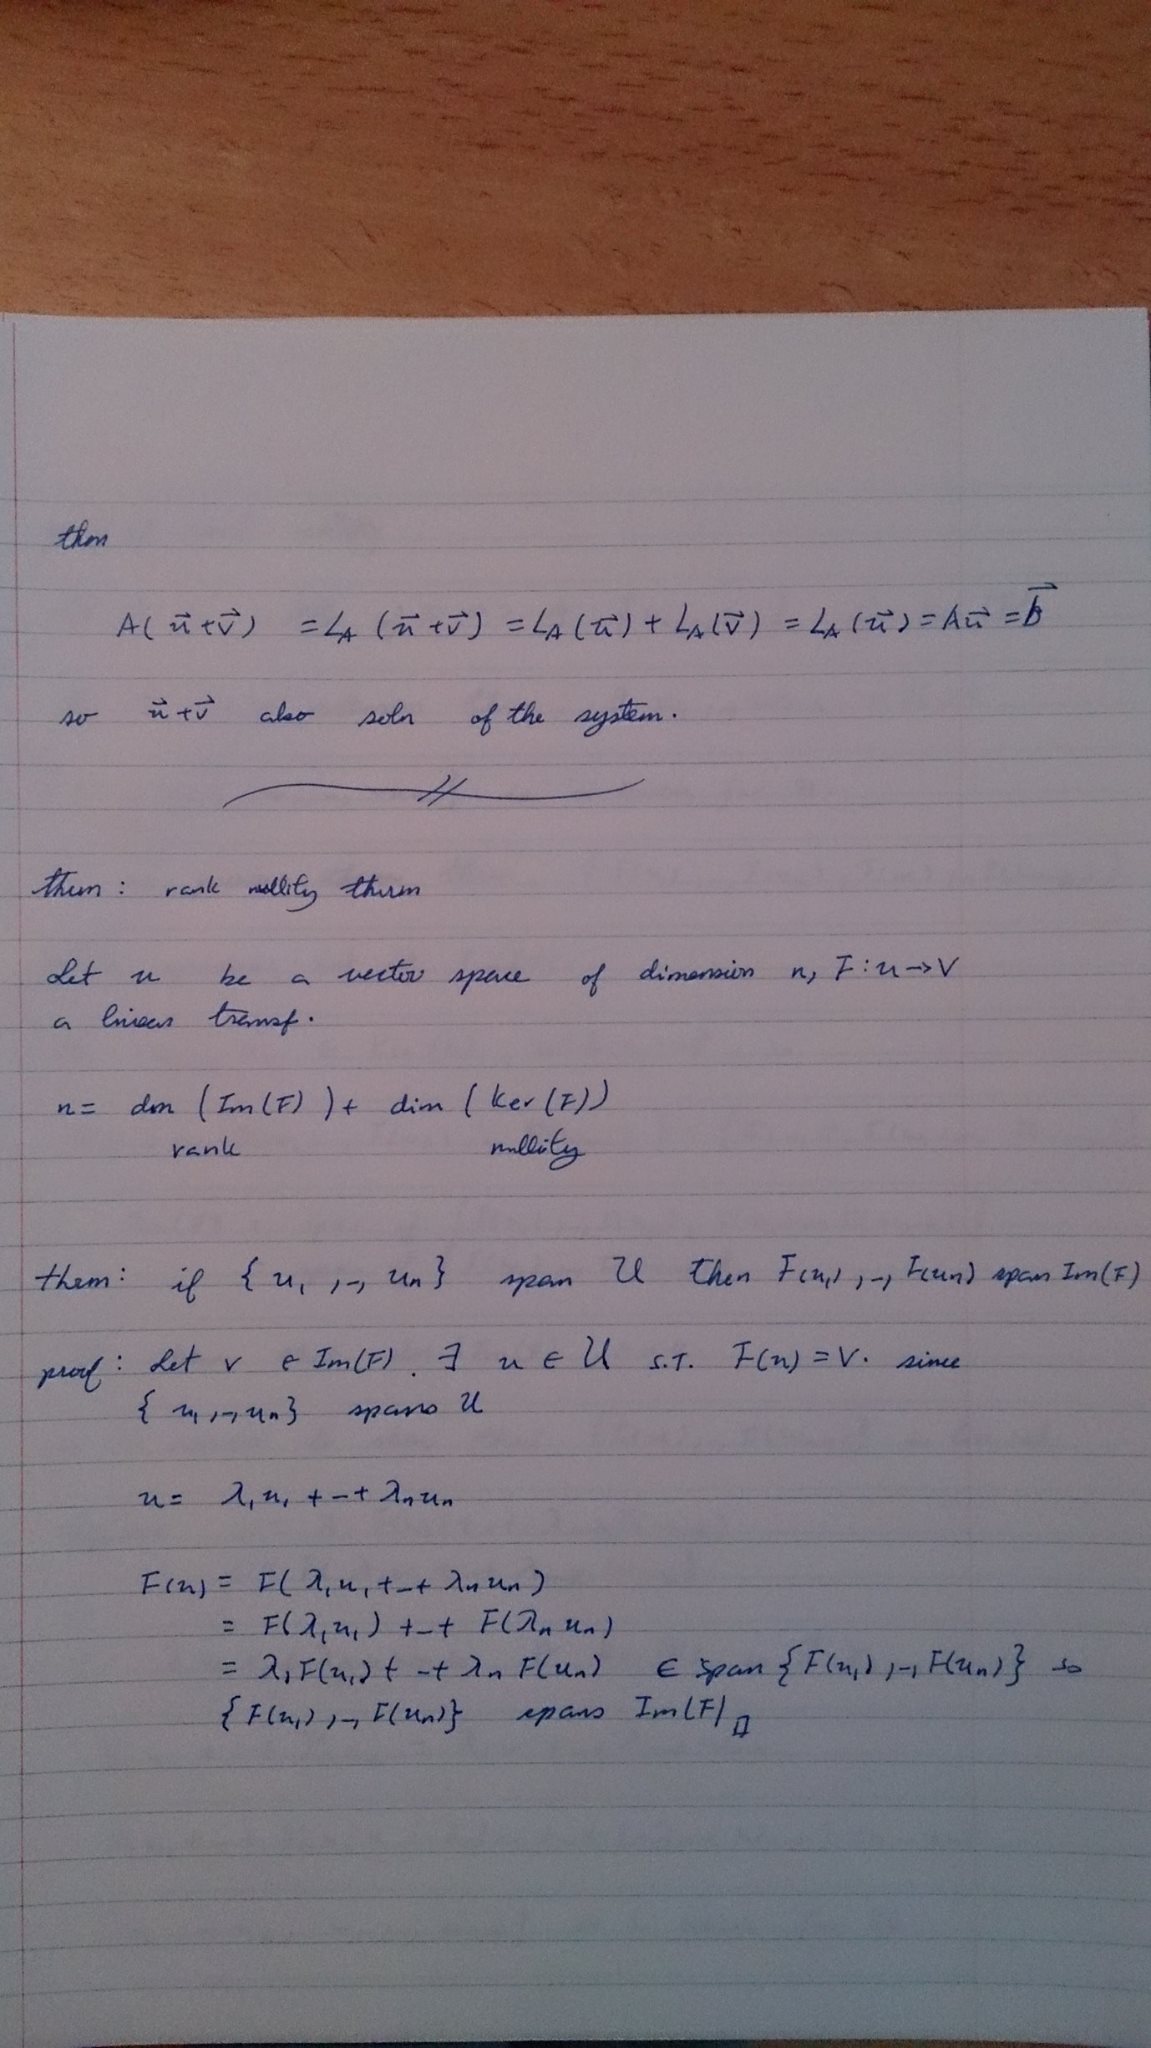 then
A( u⃗ + v⃗ ) = L_A ( u⃗ + v⃗ ) = L_A ( u⃗ ) + L_A ( v⃗ ) = L_A ( u⃗ ) = A u⃗ = b⃗
so u⃗ + v⃗ also soln of the system.
thm: rank nullity thrm
Let u be a vector space of dimension n, F : u → V
a linear transf.
n = dim ( Im(F) ) + dim ( Ker (F))
rank nullity
thm: if { u₁ , -, uₙ } span U then F(u₁) , -, F(uₙ) span Im(F)
proof: Let v ∈ Im(F). ∃ u ∈ U s.t. F(u) = v. since
{ u₁, -, uₙ } spans U
u = λ₁u₁ + - + λₙuₙ
F(u) = F( λ₁u₁ + - + λₙuₙ )
= F(λ₁u₁ ) + - + F(λₙ uₙ )
= λ₁F(u₁) + - + λₙ F(uₙ) ∈ span { F(u₁) , -, F(uₙ) } so
{ F(u₁) , -, F(uₙ) } spans Im(F) □